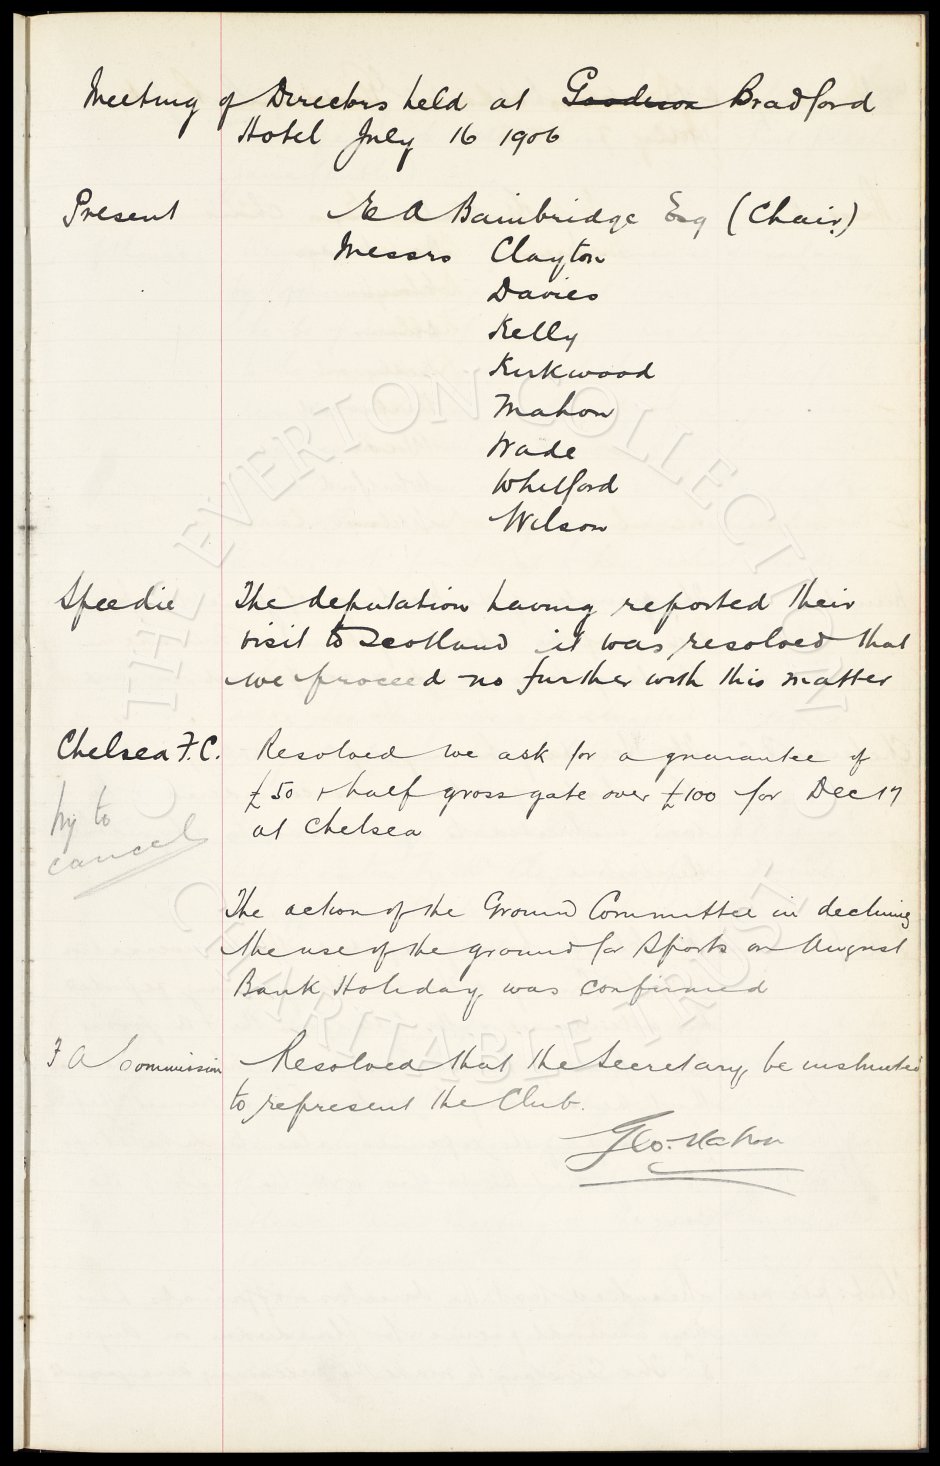 Meeting of Directors held at Goodison Bradford
Hotel July 16 1906
Present E A Bainbridge Esq (Chair)
Messrs Clayton
Davies
Kelly
Kirkwood
Mahon
Wade
Whitford
Wilson
Speedie The deputation having reported their
visit to Scotland it was resolved that
we proceed no further with this matter
Chelsea F.C. Resolved we ask for a guarantee of
£50 & half gross gate over £100 for Dec 17
at Chelsea
try to
cancel
The action of the Ground Committee in declining
the use of the ground for Sports on August
Bank Holiday was confirmed
F A Commission Resolved that the Secretary be instructed
to represent the Club.
Geo. Mahon
THE EVERTON COLLECTION
CHARITABLE TRUST